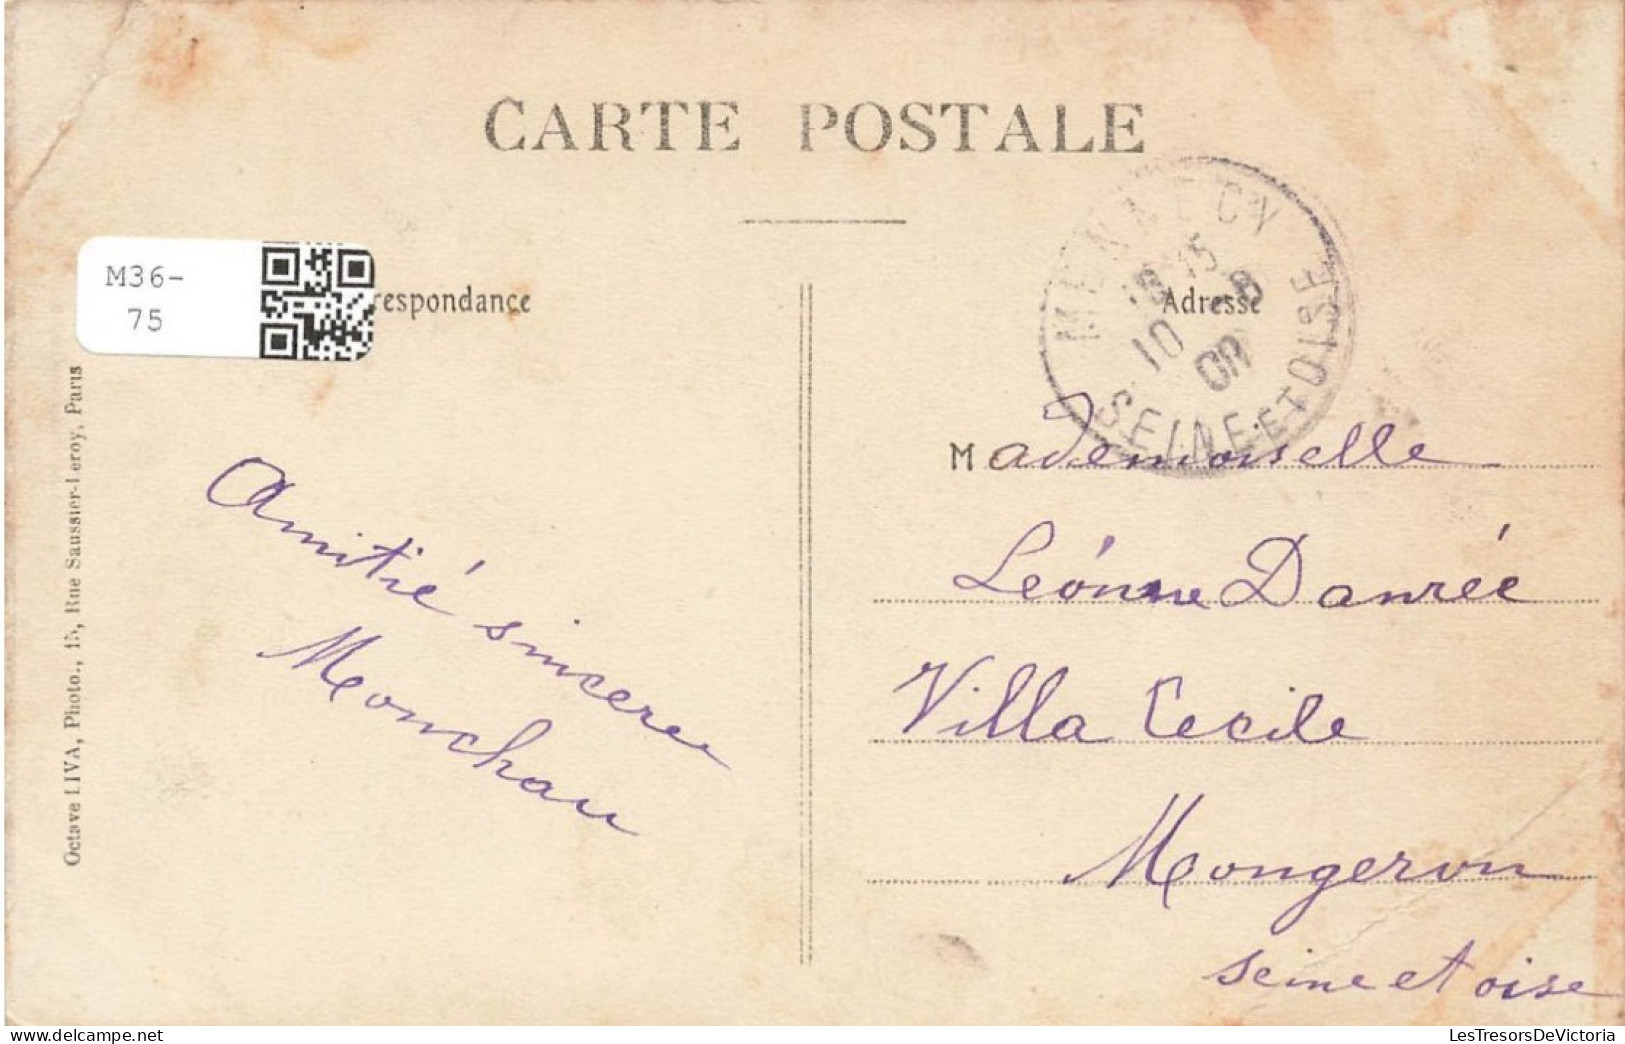 CARTE POSTALE
M36-
75
respondance
Adresse
MENNECY
18 15
10 -8
SEINE-ET-OISE
Mademoiselle
Léonne Danrée
Villa Cecile
Mongeron
Seine et oise
Amitié sincere
Monchau
Octave LIVA, Photo., 15, Rue Saussier-Leroy, Paris
LesTresorsDeVictoria